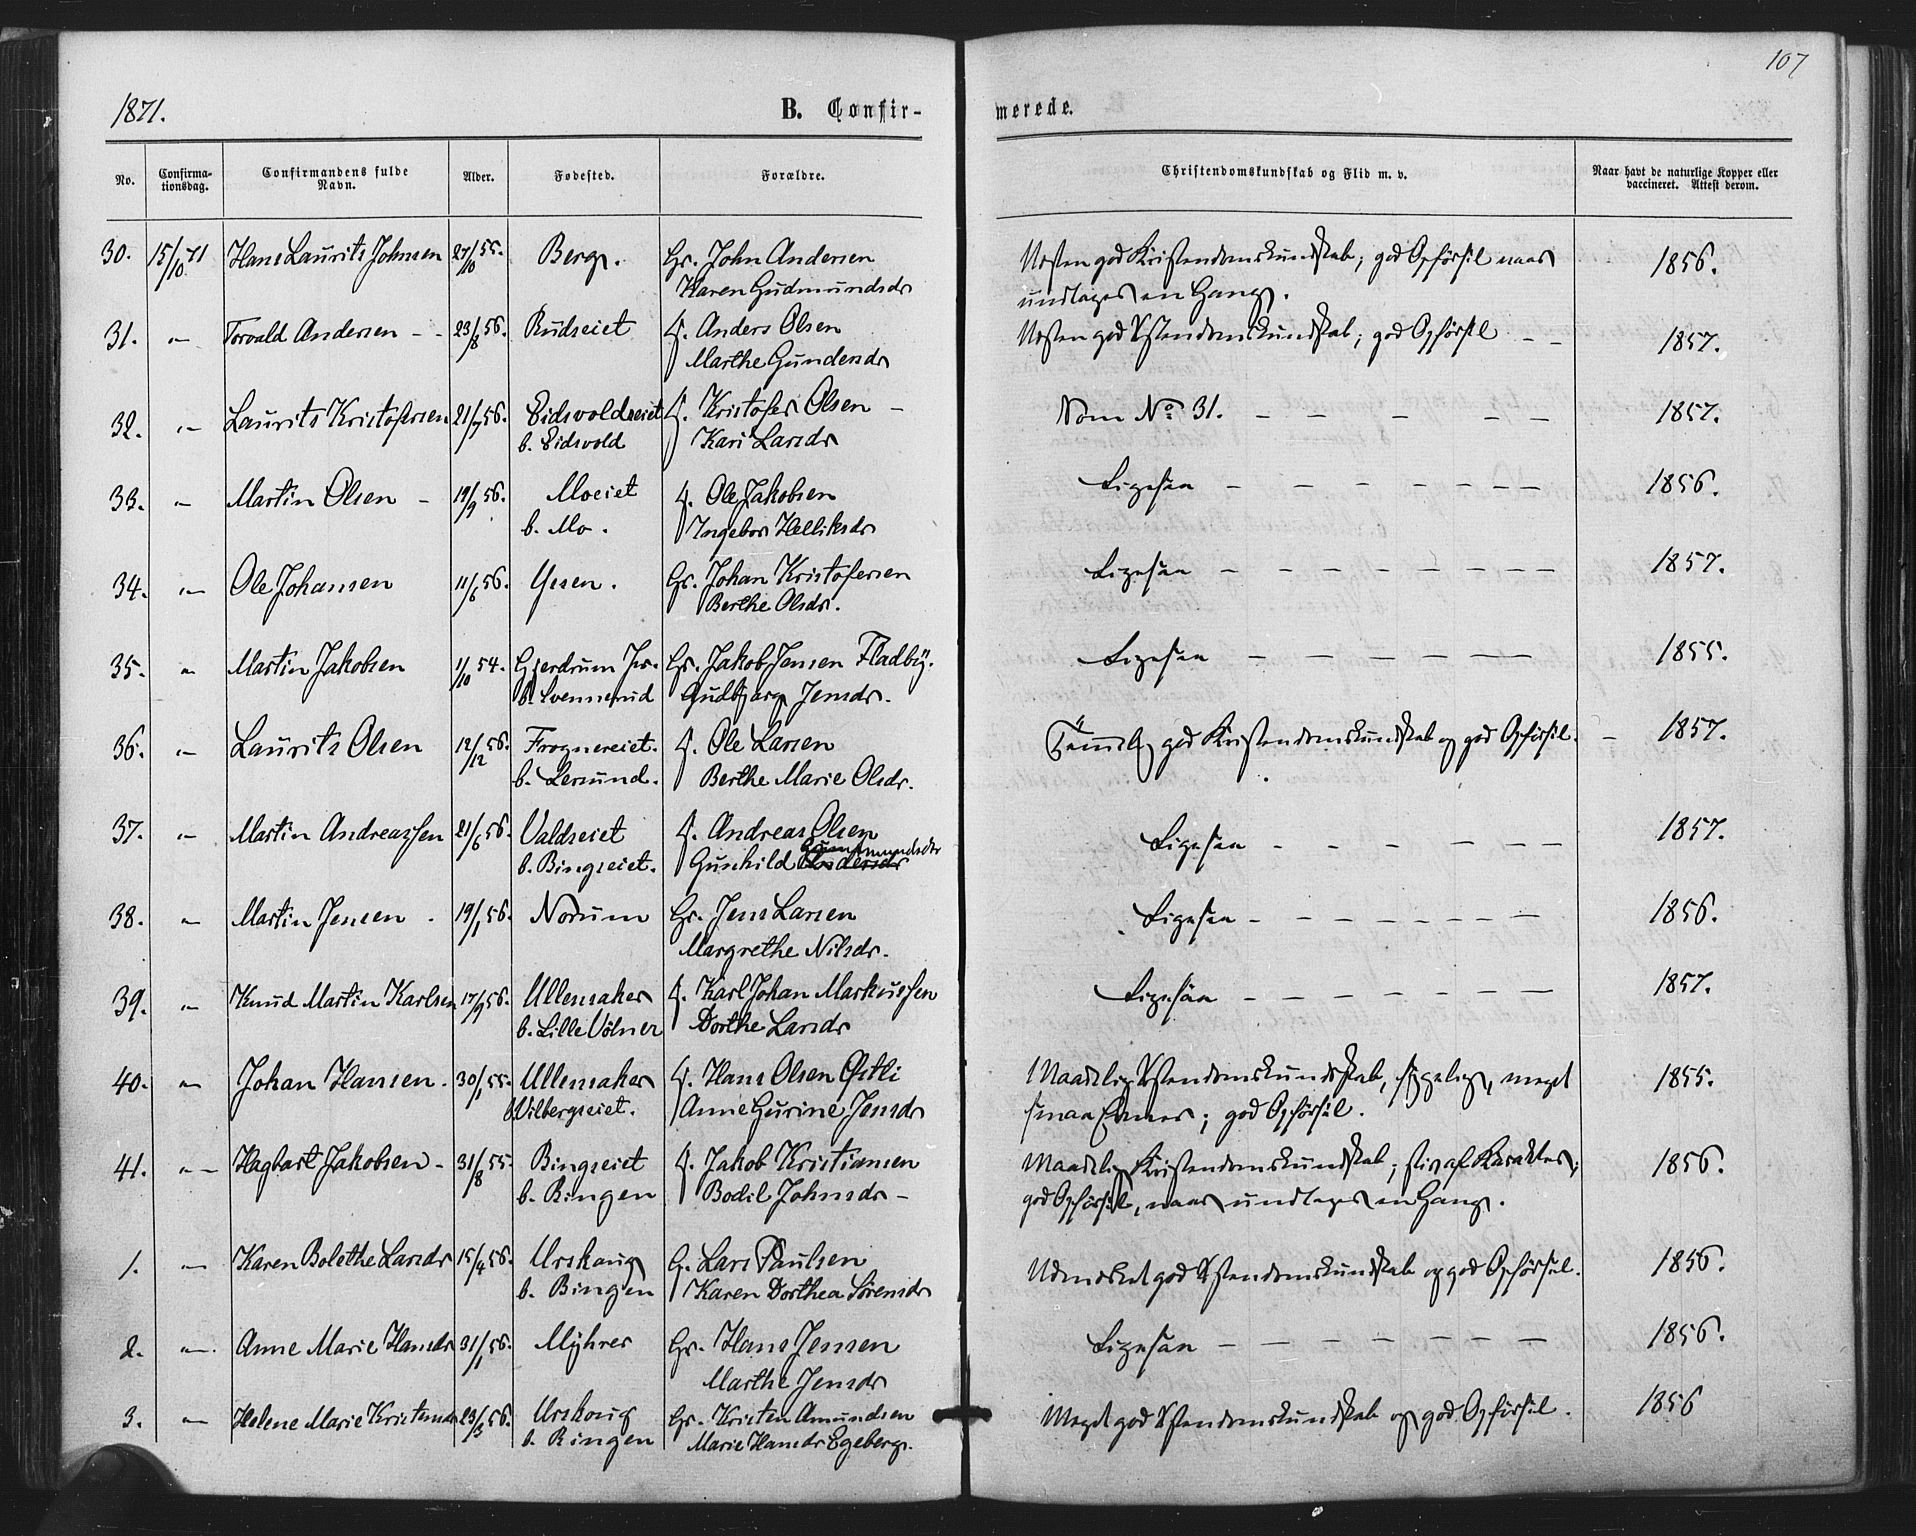 107
1871.
B. Confir-
merede.
No.
Confirma-
tionsdag.
Confirmandens fulde
Navn.
Alder.
Fødested.
Forældre.
Christendomskundskab og Flid m. v.
Naar havt de naturlige Kopper eller
vaccineret. Attest derom.
30. 15/10 71 Hans Laurits Johnsen 27/10 55. Berg. Gr. John Andersen Nesten god Kristendomskundskab; god Opförsel naar 1856.
Karen Gudmundsdr undtages en Gang.
31. -"- Torvald Andersen - - 23/8 56. Rudseiet I. Anders Olsen Nesten god Xstendomskundskab; god Opförsel - - 1857.
Marthe Gundersdr
32. -"- Laurits Kristofersen 21/7 56. Eidsvoldseiet I. Kristofer Olsen - Som No 31. - - - - - 1857.
b. Eidsvold Kari Larsdr
33. -"- Martin Olsen - 19/9 56. Moeiet I. Ole Jakobsen Ligesaa - - - - - - - 1856.
b. Mo. Ingebor Helliksdr
34. -"- Ole Johansen 11/6 56. Yssen. Gr. Johan Kristofersen Ligesaa - - - - - - - - 1857.
Berthe Olsdr.
35. " Martin Jakobsen 11/10 54. Gjerdrum Pr. Gr. Jakob Jensen Fladby. Ligesaa - - - - - - 1855.
b. Svennerud Gudbjørg Jensdr.
36. -"- Laurits Olsen 12/12 56. Frognereiet. I. Ole Larsen Temmelig god Kristendomskundskab og god Opförsel. - 1857.
b. Lersund. Berthe Marie Olsdr.
37. -"- Martin Andreassen 21/6 56. Valdseiet I. Andreas Olsen Ligesaa - - - - - 1857.
b. Bingseiet. Gunhild Gundmundsdr
38. -"- Martin Jensen - 19/1 56. Norum Gr. Jens Larsen Ligesaa - - - - - - - 1856.
Margrethe Nilsdr.
39. -"- Knud Martin Karlsen 17/9 56. Ullensaker I. Karl Johan Markussen Ligesaa - - - - - - - 1857.
b. Lille Vólner Dorthe Larsdr
40. -"- Johan Hansen. 30/1 55. Ullensaker I. Hans Olsen Østli Maadelig Xstendomskundskab, sygelig, meget 1855.
b Vilbergseiet. Anne Gurine Jensdr smaa Evner; god Opförsel.
41. -"- Hagbart Jakobsen - 31/8 55. Bingseiet I. Jakob Kristiansen Maadelig Kristendomskundskab; stiv af Karakter; 1856.
b. Bingen Bodil Johnsdr - god Opförsel, naar undtages en Gang.
1. -"- Karen Bolethe Larsdr 15/4 56. Urskoug G. Lars Paulsen Udmerket god Xstendomskundskab og god Opförsel. 1856.
b. Bingen Karen Dorthea Sörensdr
2. -"- Anne Marie Hansdr 31/1 56. Myhrer Gr. Hans Jensen Ligesaa - - - - - - - 1856.
Marthe Jensdr
3. -"- Helene Marie Kristensdr 23/3 56. Urskoug Gr. Kristen Amundsen Meget god Xstendomskundskab og god Opförsel. 1856
b. Bingen Marie Hansdr Egeberg.